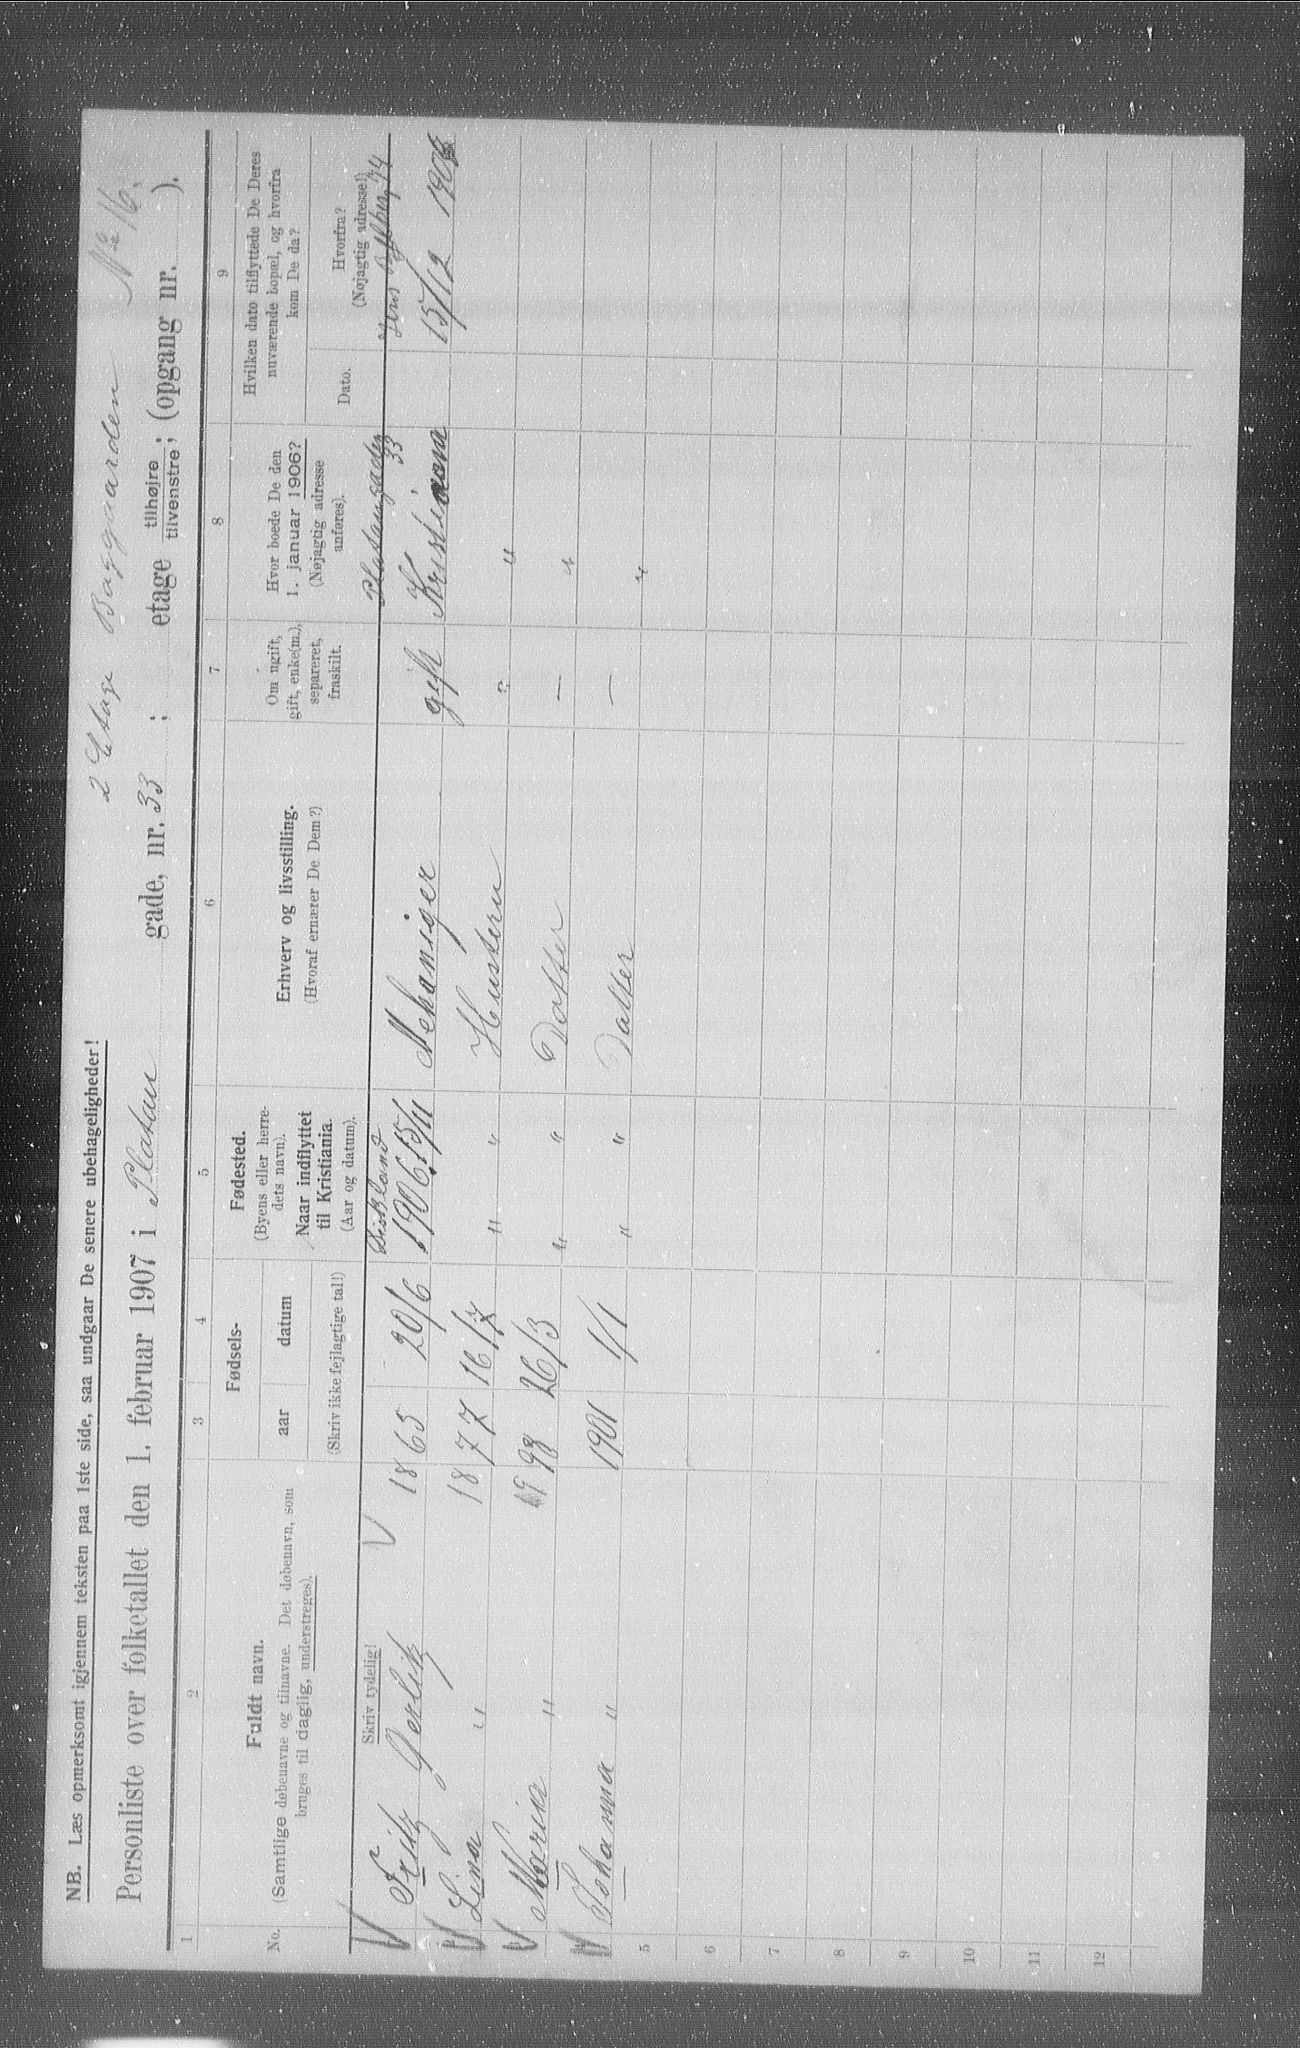 2 Etage Baggaarden № 16.
NB. Læs opmerksomt igjennem teksten paa 1ste side, saa undgaar De senere ubehageligheder!
Personliste over folketallet den 1. februar 1907 i Platan gade, nr. 33 ; etage tilhøjre tilvenstre; (opgang nr. ).
1 2 3 4 5 6 7 8 9
No.
Fuldt navn.
(Samtlige døbenavne og tilnavne. Det døbenavn, som
bruges til daglig, understreges).
Skriv tydelig!
Fødsels-
aar datum
(Skriv ikke fejlagtige tal!)
Fødested.
(Byens eller herre-
dets navn).
Naar indflyttet
til Kristiania.
(Aar og datum).
Erhverv og livsstilling.
(Hvoraf ernærer De Dem?)
Om ugift,
gift, enke(m.),
separeret,
fraskilt.
Hvor boede De den
1. januar 1906?
(Nøjagtig adresse
anføres).
Hvilken dato tilflyttede De Deres
nuværende bopæl, og hvorfra
kom De da?
Dato.
Hvorfra?
(Nøjagtig adresse!)
Platangaden 33 Jens
Fritz Gerlitz 1865 20/6 1906 15/11 Mekaniger gift Kristiania 15/12 1906
Lina " 1877 16/ " " Hustern " "
Maria " 98 26/3 " " Datter — "
Johanna " 1901 1/1 " " Datter — "
5
6
7
8
9
10
11
12